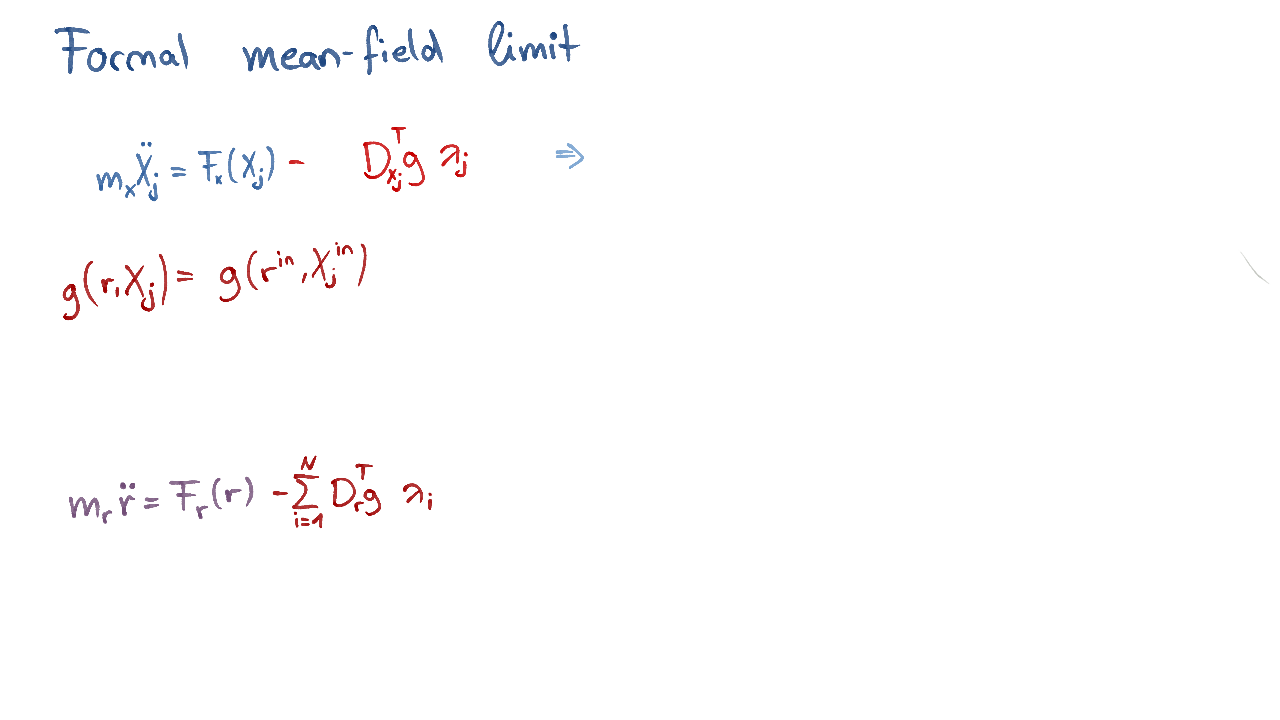 Formal mean-field limit
m_x Ẍ_j = F_x(X_j) - D_{x_j}^T g λ_j ⇒
g(r, X_j) = g(r^{in}, X_j^{in})
m_r r̈ = F_r(r) - ∑_{i=1}^N D_r^T g λ_i